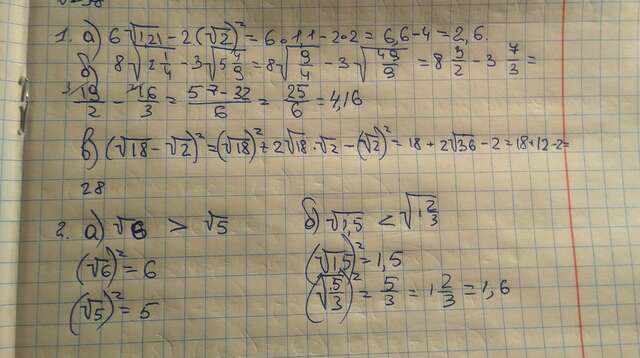 1. а) 6√1,21 - 2(√2)² = 6·1,1 - 2·2 = 6,6 - 4 = 2,6.
б) 8√2 1/4 - 3√5 4/9 = 8√9/4 - 3√49/9 = 8 3/2 - 3 7/3 =
19/2 - 16/3 = 57-32/6 = 25/6 = 4,16
в) (√18 - √2)² = (√18)² + 2√18·√2 - (√2)² = 18 + 2√36 - 2 = 18+12-2=
28
2. а) √6 > √5 б) √1,5 < √1 2/3
(√6)² = 6 (√1,5)² = 1,5
(√5)² = 5 (√5/3)² = 5/3 = 1 2/3 = 1,6